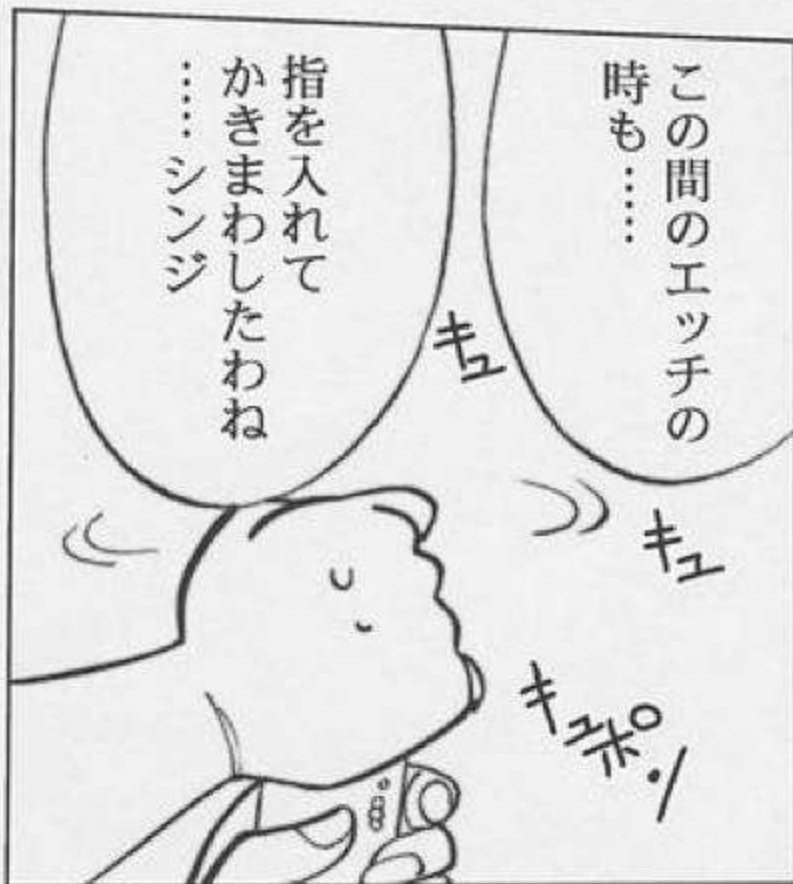 この間のエッチの
時も……
指を入れて
かきまわしたわね
……シンジ
キュ
キュ
キュポン